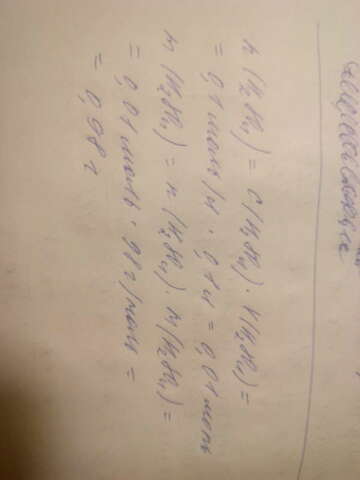 n(H₂SO₄) = C(H₂SO₄) · V(H₂SO₄) =
= 0,1 моль/л · 0,1 л = 0,01 моль
m(H₂SO₄) = n(H₂SO₄) · M(H₂SO₄) =
= 0,01 моль · 98 г/моль =
= 0,98 г